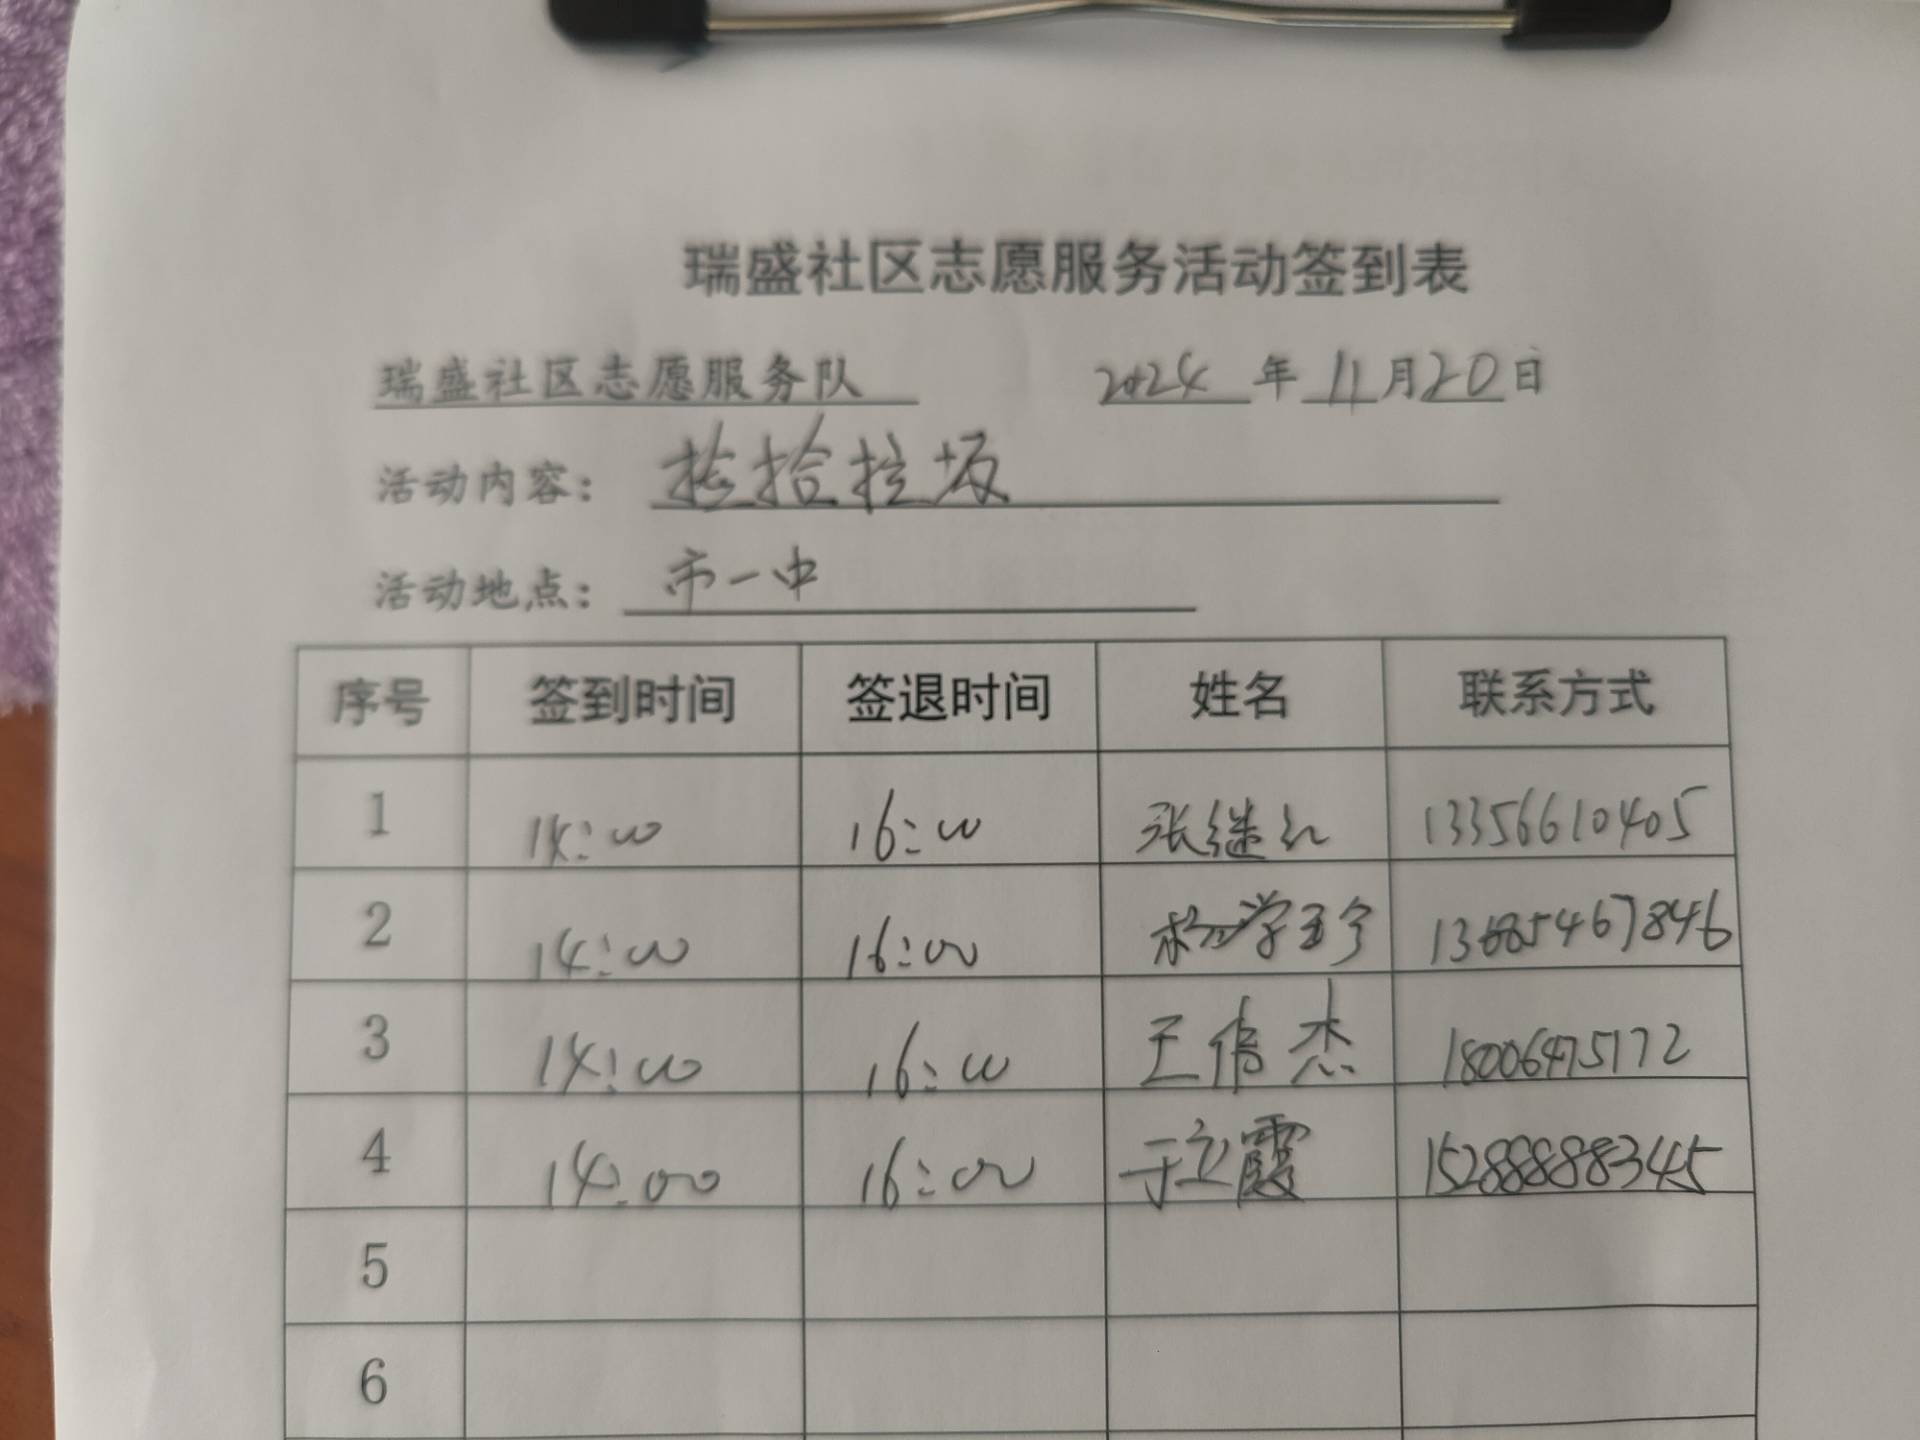 瑞盛社区志愿服务活动签到表
瑞盛社区志愿服务队 2024年11月20日
活动内容: 捡拾垃圾
活动地点: 市一中
序号 签到时间 签退时间 姓名 联系方式
1 14:00 16:00 张继红 13356610405
2 14:00 16:00 杨学
3 14:00 16:00 王倩杰 18006475172
4 14:00 16:00 于立霞 15288888345
5
6